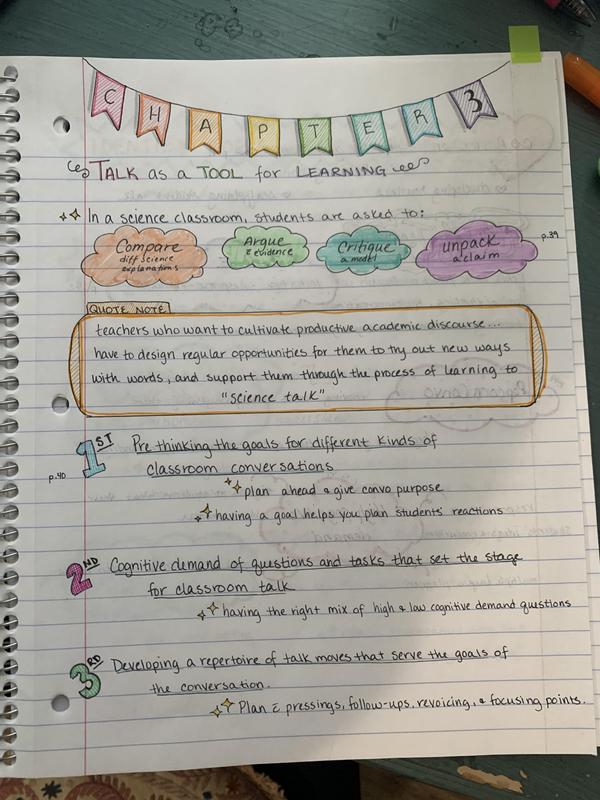 CHAPTER 3
TALK as a TOOL for LEARNING
In a science classroom, students are asked to:
Compare
diff science
explanations
Argue
c̄ evidence
Critique
a model
unpack
a claim
p.39
QUOTE NOTE
teachers who want to cultivate productive academic discourse...
have to design regular opportunities for them to try out new ways
with words, and support them through the process of learning to
"science talk"
1ST Pre thinking the goals for different kinds of
classroom conversations
p.40
plan ahead & give convo purpose
having a goal helps you plan students' reactions
2ND Cognitive demand of questions and tasks that set the stage
for classroom talk
having the right mix of high & low cognitive demand questions
3RD Developing a repertoire of talk moves that serve the goals of
the conversation.
Plan c̄ pressings, follow-ups, revoicing, & focusing points.